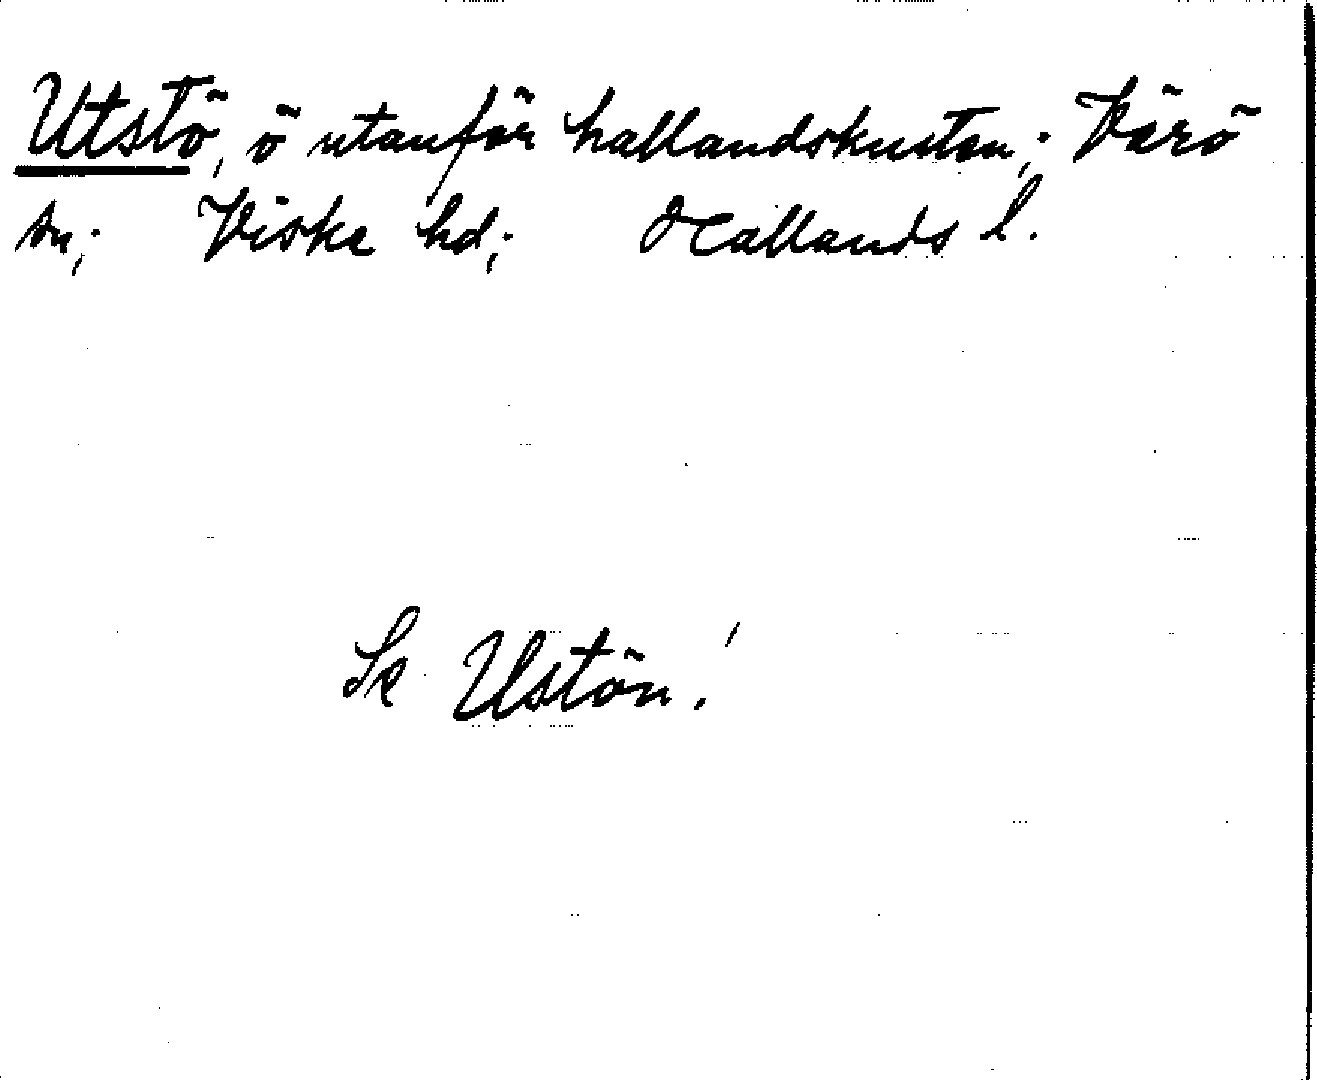 Utstö, ö utanför hallandskusten; Värö
sn; Viske hd; Hallands l.
Se Ustön!